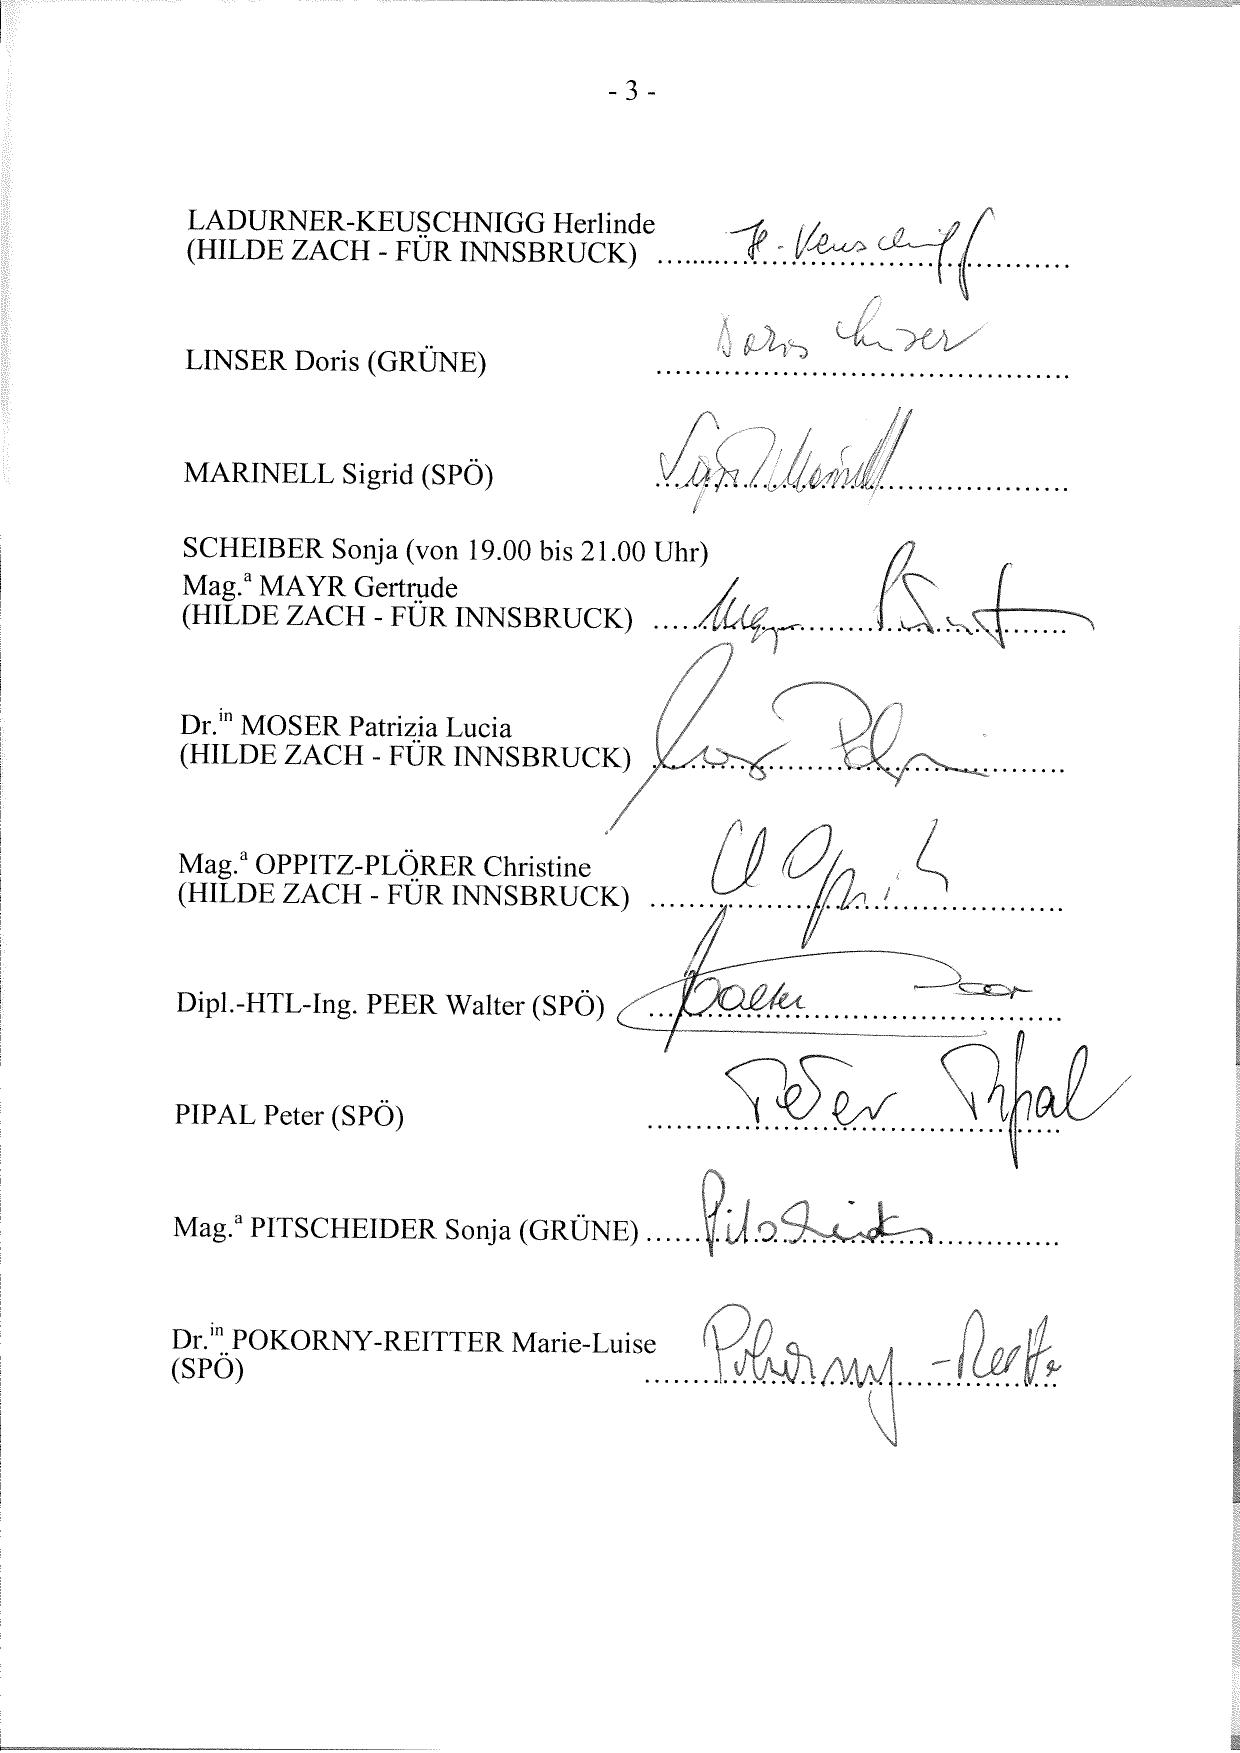 - 3 -
LADURNER-KEUSCHNIGG Herlinde
(HILDE ZACH - FÜR INNSBRUCK) H. Keuschnigg
LINSER Doris (GRÜNE) Doris Linser
MARINELL Sigrid (SPÖ) Sigrid Marinell
SCHEIBER Sonja (von 19.00 bis 21.00 Uhr)
Mag.ª MAYR Gertrude
(HILDE ZACH - FÜR INNSBRUCK)
Dr.in MOSER Patrizia Lucia
(HILDE ZACH - FÜR INNSBRUCK)
Mag.ª OPPITZ-PLÖRER Christine
(HILDE ZACH - FÜR INNSBRUCK)
Dipl.-HTL-Ing. PEER Walter (SPÖ) Walter Peer
PIPAL Peter (SPÖ) Peter Pipal
Mag.ª PITSCHEIDER Sonja (GRÜNE) Pitscheider
Dr.in POKORNY-REITTER Marie-Luise
(SPÖ) Pokorny-Reitter